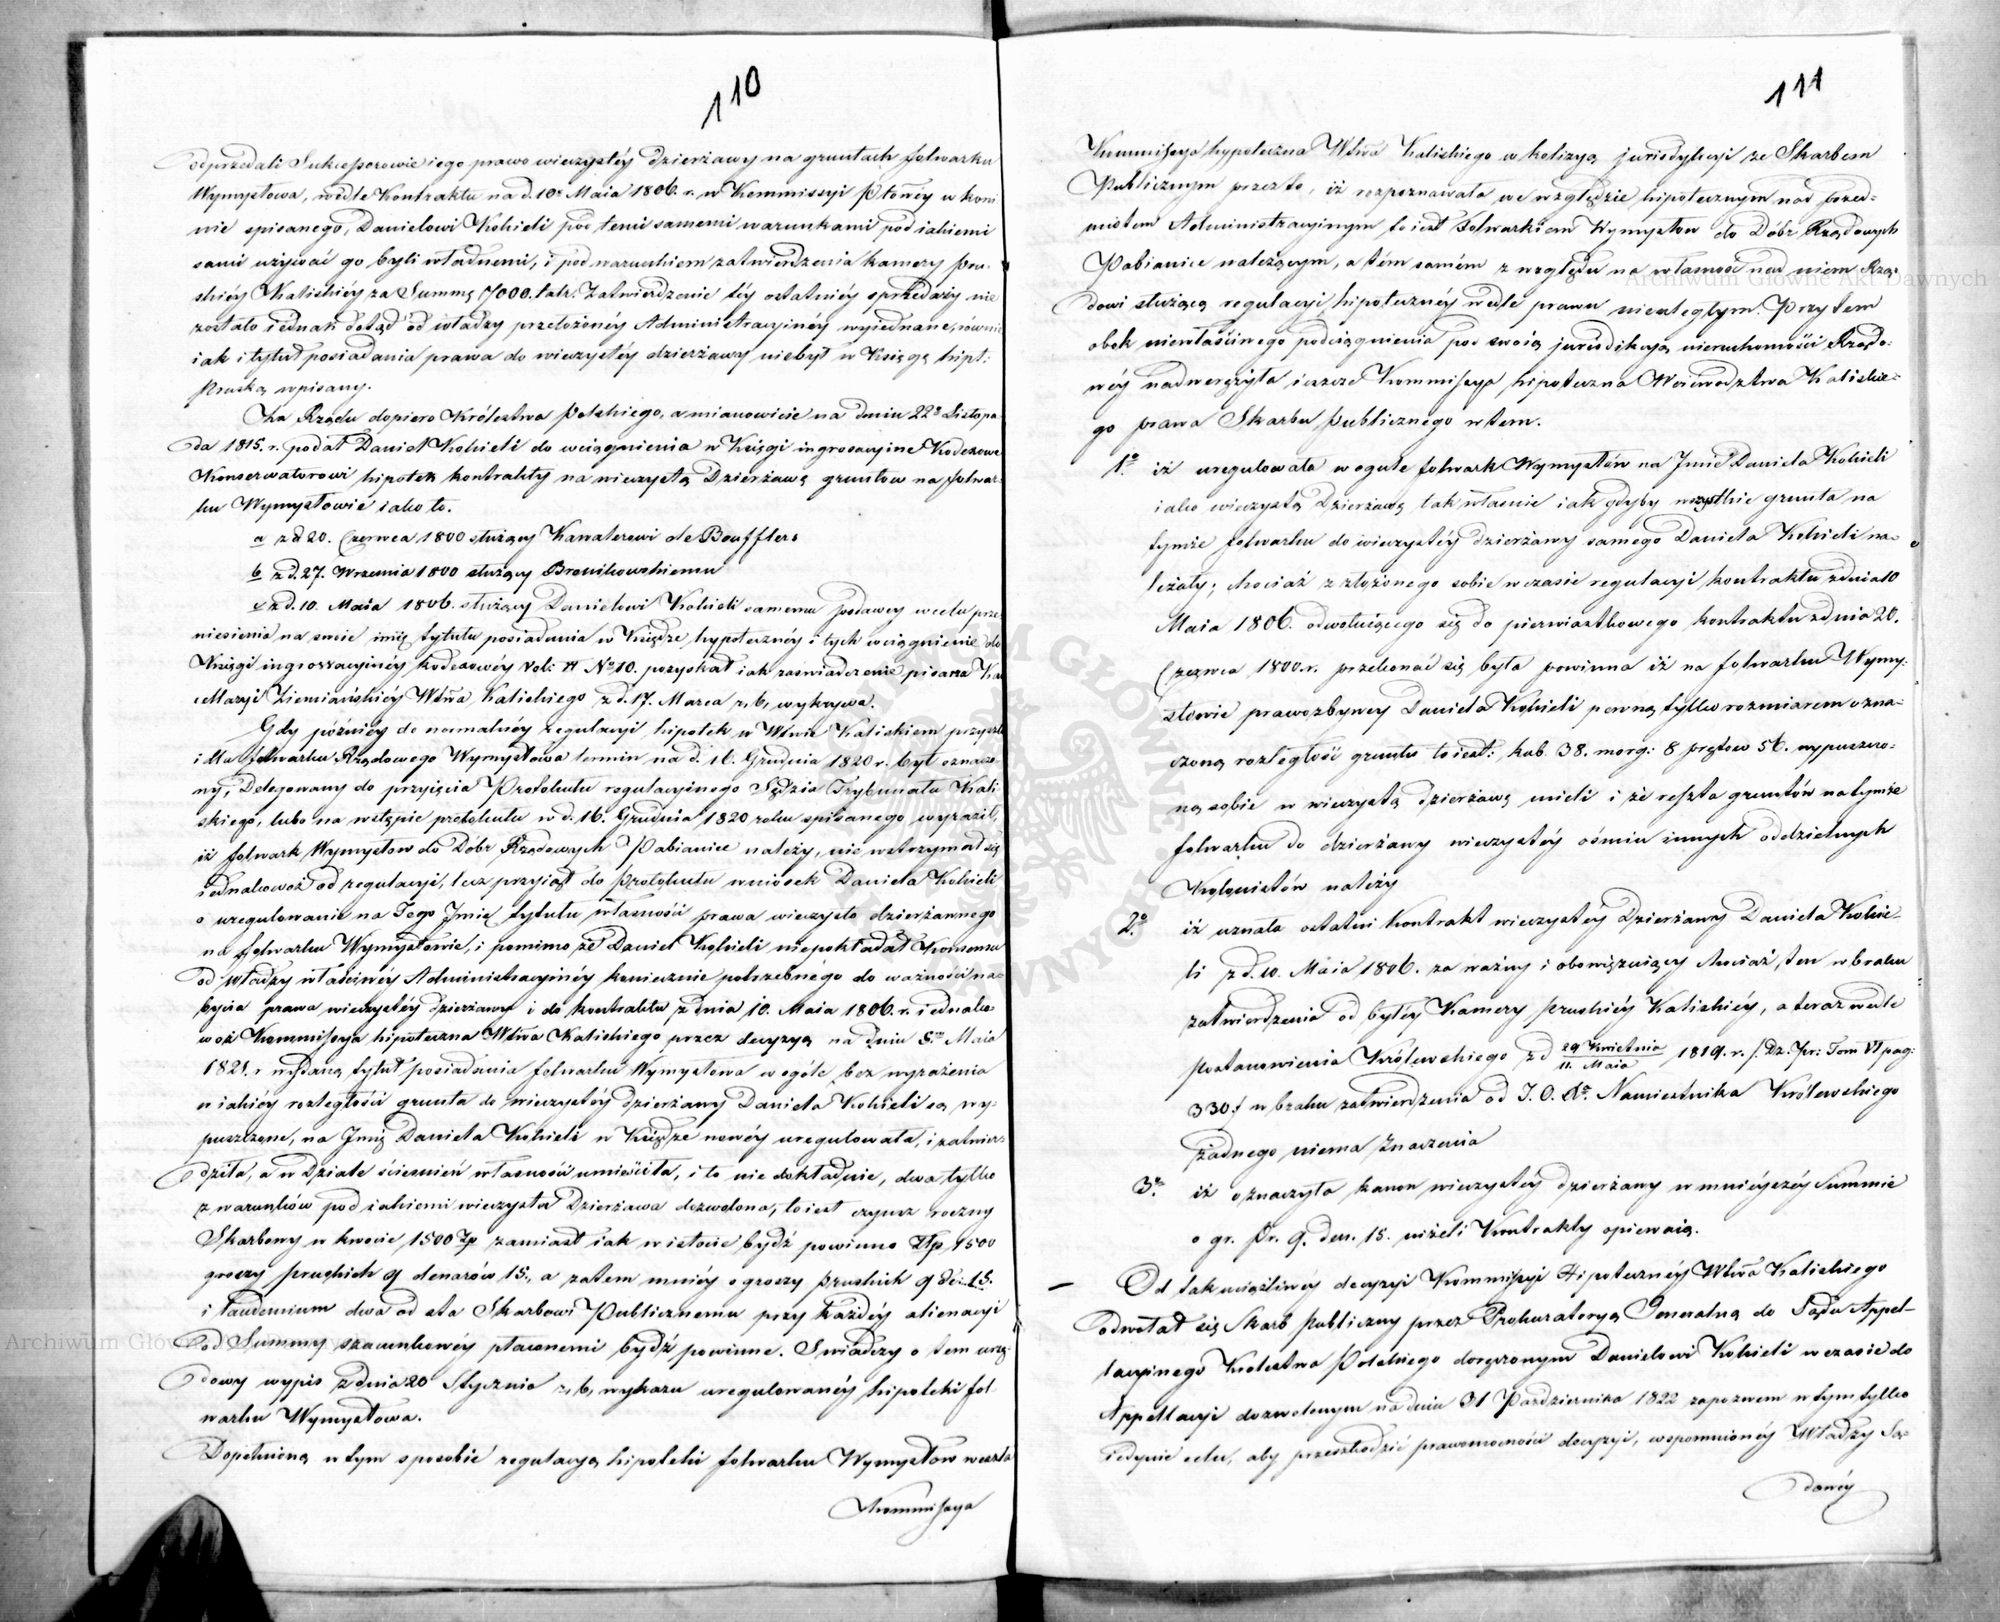 110
odprzedali Sukcessorowie iego prawo wieczystéy dzierżawy na gruntach folwarku
Wymysłowa, wedle Kontraktu na d. 10 Maia 1806. r. w Kommissyi w Koni
nie spisanego, Danielowi Kobieli pod temi samemi warunkami pod iakiemi
sami używać go byli władnemi, i pod warunkiem zatwierdzenia Kamery Pru-
skiéy Kaliskiéy za Summę 7000. tal. Zatwierdzenie téy ostatniéy sprzedaży nie
zostało iednak dotąd od władzy przełożonéy Administracyinéy wyiednane, równie
iak i tytuł posiadania prawa do wieczystéy dzierżawy niebył w Księgę hipt:
Pruską wpisany.
Za Rządu dopiero Królestwa Polskiego, a mianowicie na dniu 22 Listopa-
da 1815. r. podał Daniel Kobieli do wciągnienia w Księgi ingrossacyine Kodexowe
Konserwatorowi hipotek kontrakty na wieczystą Dzierżawę gruntów na folwar-
ku Wymysłowie iako to.
a z d 20. Czerwca 1800 służący Kawalerowi de Boufflers
b z d. 27. Września 1800 służący Bronikowskiemu
c z d. 10. Maia 1806. służący Danielowi Kobieli samemu podawcy w celu prze
niesienia na swoie imię tytułu posiadania w Księdze hypotecznéy i tych wciągnienie do
Księgi ingrossacyinéy kodexowéy Vol: VI No 10. pozyskał iak zaświadczenie pisarza Kan
cellaryi Ziemiańskiéy Wdwa Kaliskiego z d. 17. Marca r, b, wykrywa.
Gdy późniéy do normalnéy regulacyi hipotek w Wdwie Kaliskiem przyszło
i dla folwarku Rządowego Wymysłowa termin na d. 16. Grudnia 1820 r. był oznaczo-
ny, Delegowany do przyięcia Protokułu regulacyinego Sędzia Trybunału Kali
skiego, lubo na wstępie protokułu w d. 16. Grudnia 1820 roku spisanego wyraził,
iż folwark Wymysłow do Dóbr Rządowych Pabianice należy, nie wstrzymał się
iednakowoż od regulacyi, lecz przyiął do protokułu wniosek Daniela Kobieli
o uregulowanie na Jego Imię tytułu własności prawa wieczysto dzierżawnego
na folwarku Wymysłowie, i pomimo, że Daniel Kobieli niepokładał Konsensu
od władzy właściwéy Administracyinéy koniecznie potrzebnego do ważności na-
bycia prawa wieczystéy dzierżawy i do kontraktu z dnia 10. Maia 1806. r. iednako
woż Kommissya hipoteczna Wdwa Kaliskiego przez decyzyą na dniu 5 Maia
1821. r wydaną, tytuł posiadania folwarku Wymysłowa w ogóle, bez wyrażenia
w iakiéy rozległości grunta do wieczystéy dzierżawy Daniela Kobieli są wy-
puszczone, na Imię Daniela Kobieli w Księdze nowéy uregulowała, i zatwier-
dziła, a w Dziale ścieśnień własności umieściła, i to nie dokładnie, dwa tylko
z warunków pod iakiemi wieczysta Dzierżawa dozwolona, to iest czynsz roczny
Skarbowy w kwocie 1500 Zp zamiast iak w istocie bydź powinno Złp. 1500
groszy pruskich 9 denarów 15., a zatem mniéy o groszy pruskich 9 de: 15.
i laudemium dwa od sta Skarbowi Publicznemu przy każdéy alienacyi
od Summy szacunkowéy płaconemi bydź powinne. Świadczy o tem urzę-
dowy wypis z dnia 20 Stycznia r, b, wykazu uregulowanéy hipoteki fol-
warku Wymysłowa.
Dopełnioną w tym sposobie regulacyą hipoteki folwarku Wymysłow weszła
Kommissya
111
Kommissya hypoteczna Wdwa Kaliskiego w kolizyą jurisdykcyi ze Skarbem
Publicznym przez to, iż rozpoznawała we względzie hipotecznym nad przed-
miotem Administracyinym to iest folwarkiem Wymysłow do Dóbr Rządowych
Pabianice należącym, a tém samém z względu na własność nad niem Rzą-
dowi służącą regulacyi hipotecznéy wedle prawa nieuległym. Przytem
obok niewłaściwego podciągnienia pod swoią jurisdikcyą nieruchomości Rządo-
wéy nadwerężyła ieszcze Kommissya hipoteczna Woiewodztwa Kaliskie-
go prawa Skarbu publicznego w tem.
1o iż uregulowała w ogule folwark Wymysłów na Imie Daniela Kobieli
iako wieczystą Dzierżawę tak właśnie iak gdyby wszystkie grunta na
tymże folwarku do wieczystéy dzierżawy samego Daniela Kobieli na-
leżały; chociaż z złożonego sobie w czasie regulacyi kontraktu z dnia 10
Maia 1806. odwołuiącego się do pierwiastkowego kontraktu z dnia 20.
Czerwca 1800. r. przekonać się była powinna iż na folwarku Wymy-
słowie prawozbywcy Daniela Kobieli pewną tylko rozmiarem ozna-
czoną rozległość gruntu to iest: hub. 38. morg: 8 prętow 56. wypuszczo-
ną sobie w wieczystą dzierżawę mieli i że reszta gruntów na tymże
folwarku do dzierżawy wieczystéy ośmiu innych oddzielnych
Kolonistów należy
2o iż uznała ostatni kontrakt wieczystéy Dzierżawy Daniela Kobie-
li z d. 10. Maia 1806. za ważny i obowięzuiący chociaż, ten w braku
zatwierdzenia od byłéy Kamery pruskiéy Kaliskiéy, a teraz wedle
postanowienia Królewskiego z d 29 Kwietnia / 11. Maia 1819. r. /. Dz. Pr: Tom VI pag:
330./ w braku zatwierdzenia od J. O. Xa. Namiestnika Królewskiego
żadnego niema znaczenia
3o iż oznaczyła kanon wieczystéy dzierżawy w mnieyszéy Summie
o gr. Pr. 9. den. 15. niżeli Kontrakty opiewaią.
Od tak uciążliwéy decyzyi Kommissyi Hipotecznéy Wdwa Kaliskiego
odwołał się Skarb publiczny przez Prokuratoryą Generalną do Sądu Appel-
lacyinego Królestwa Polskiego doręczonym Danielowi Kobieli w czasie do
Appellacyi dozwolonym na dniu 31 Października 1822 zapozwem w tym tylko
iedynie celu, aby przeszkodzić prawomocności decyzyi, wspomnionéy Władzy Są-
dowéy
Archiwum Główne Akt Dawnych